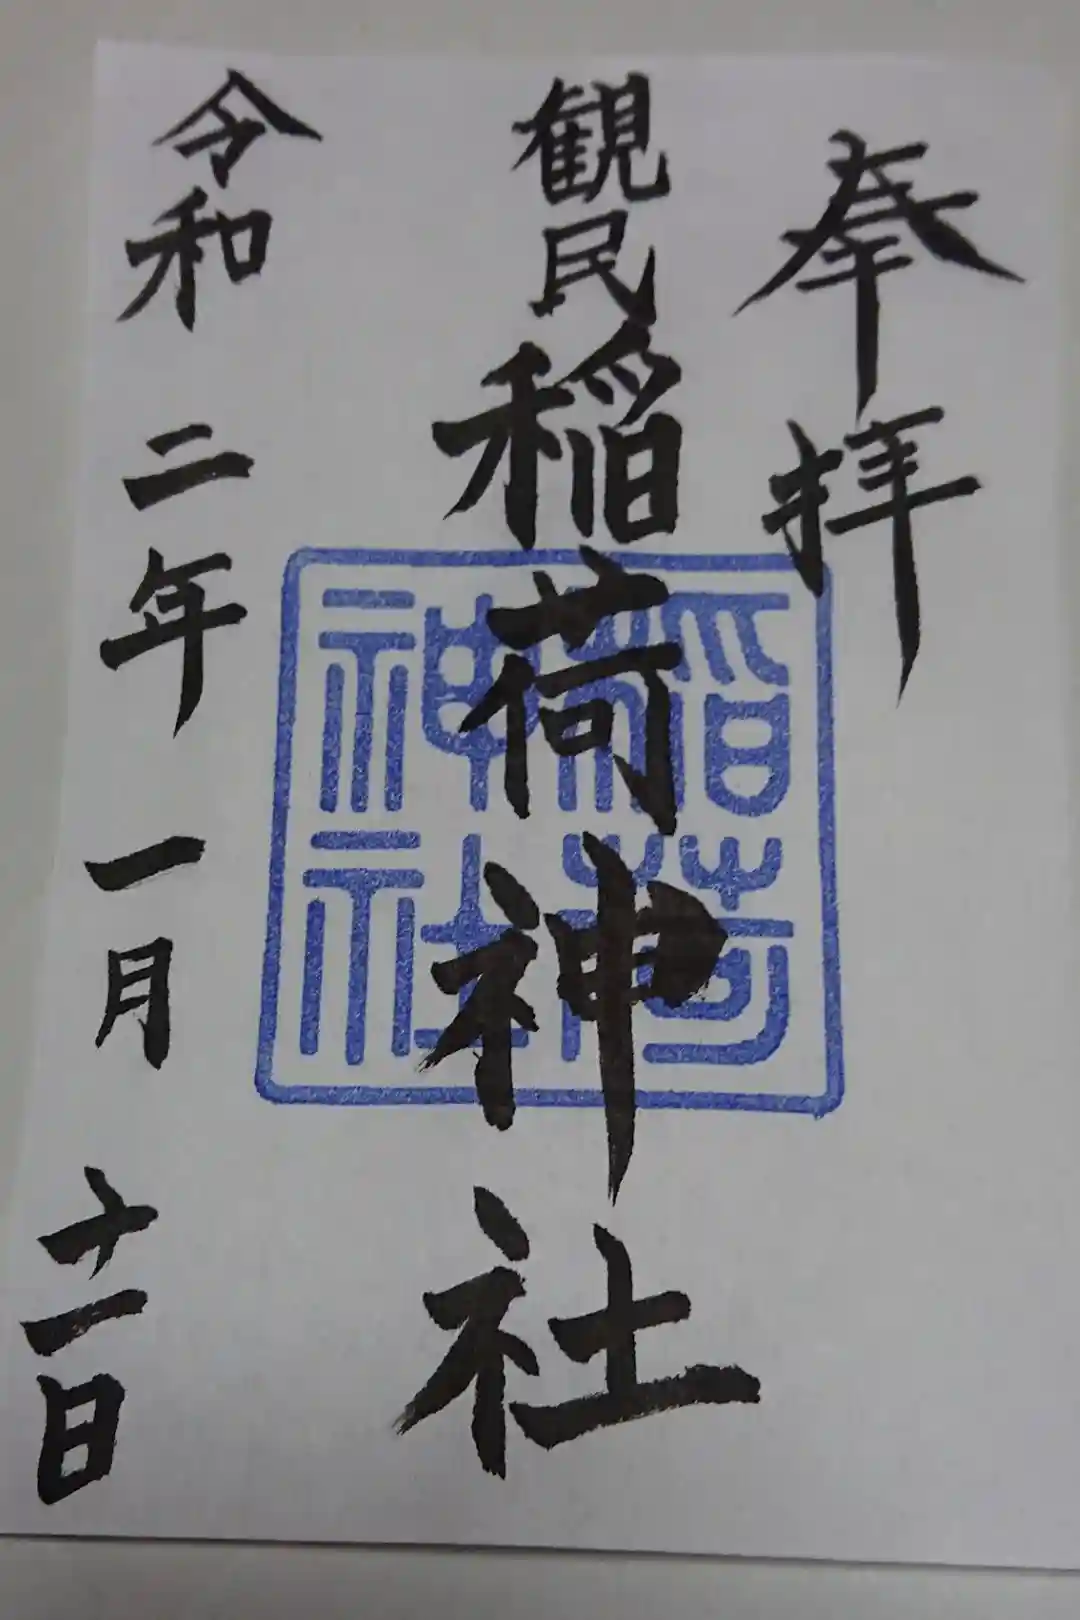 奉拝
観民稲荷神社
稲荷神社
令和二年一月十一日